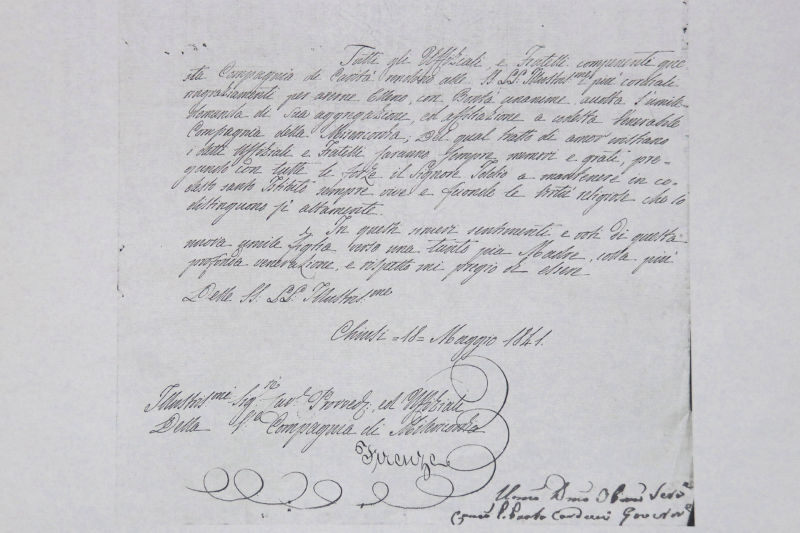 Tutti gli Uffiziali, e Fratelli componente que
sta Compagnia di Carità inviano alle Sl. LL. Illustris.me più cordiali
ringraziamenti per avere Elleno, con Bontà unanime accolta l'umile
domanda di sua aggregazione, ed affiliazione a codesta Venerabile
Compagnia della Misericordia; Del qual tratto di amor cristiano
i detti Uffiziali e Fratelli saranno sempre memori e grati, pre-
gando con tutte le forze il Signore Iddio a mantenere in co-
desto santo Istituto sempre vive e feconde le virtù religiose che lo
distinguono sì altamente.
In questi sinceri sentimenti e voti di questa
nuova umile figlia verso una tanto pia Madre, colla più
profonda venerazione, e rispetto mi pregio di essere
Delle Sl. LL. Illustris.me
Chiusi = 18 = Maggio 1841.
Illustris.mi Sig.ri Provved. ed Uffiziali
Della Compagnia di Misericordia
Firenze
Umo Dmo Obmo Serv
P. Paolo Govern